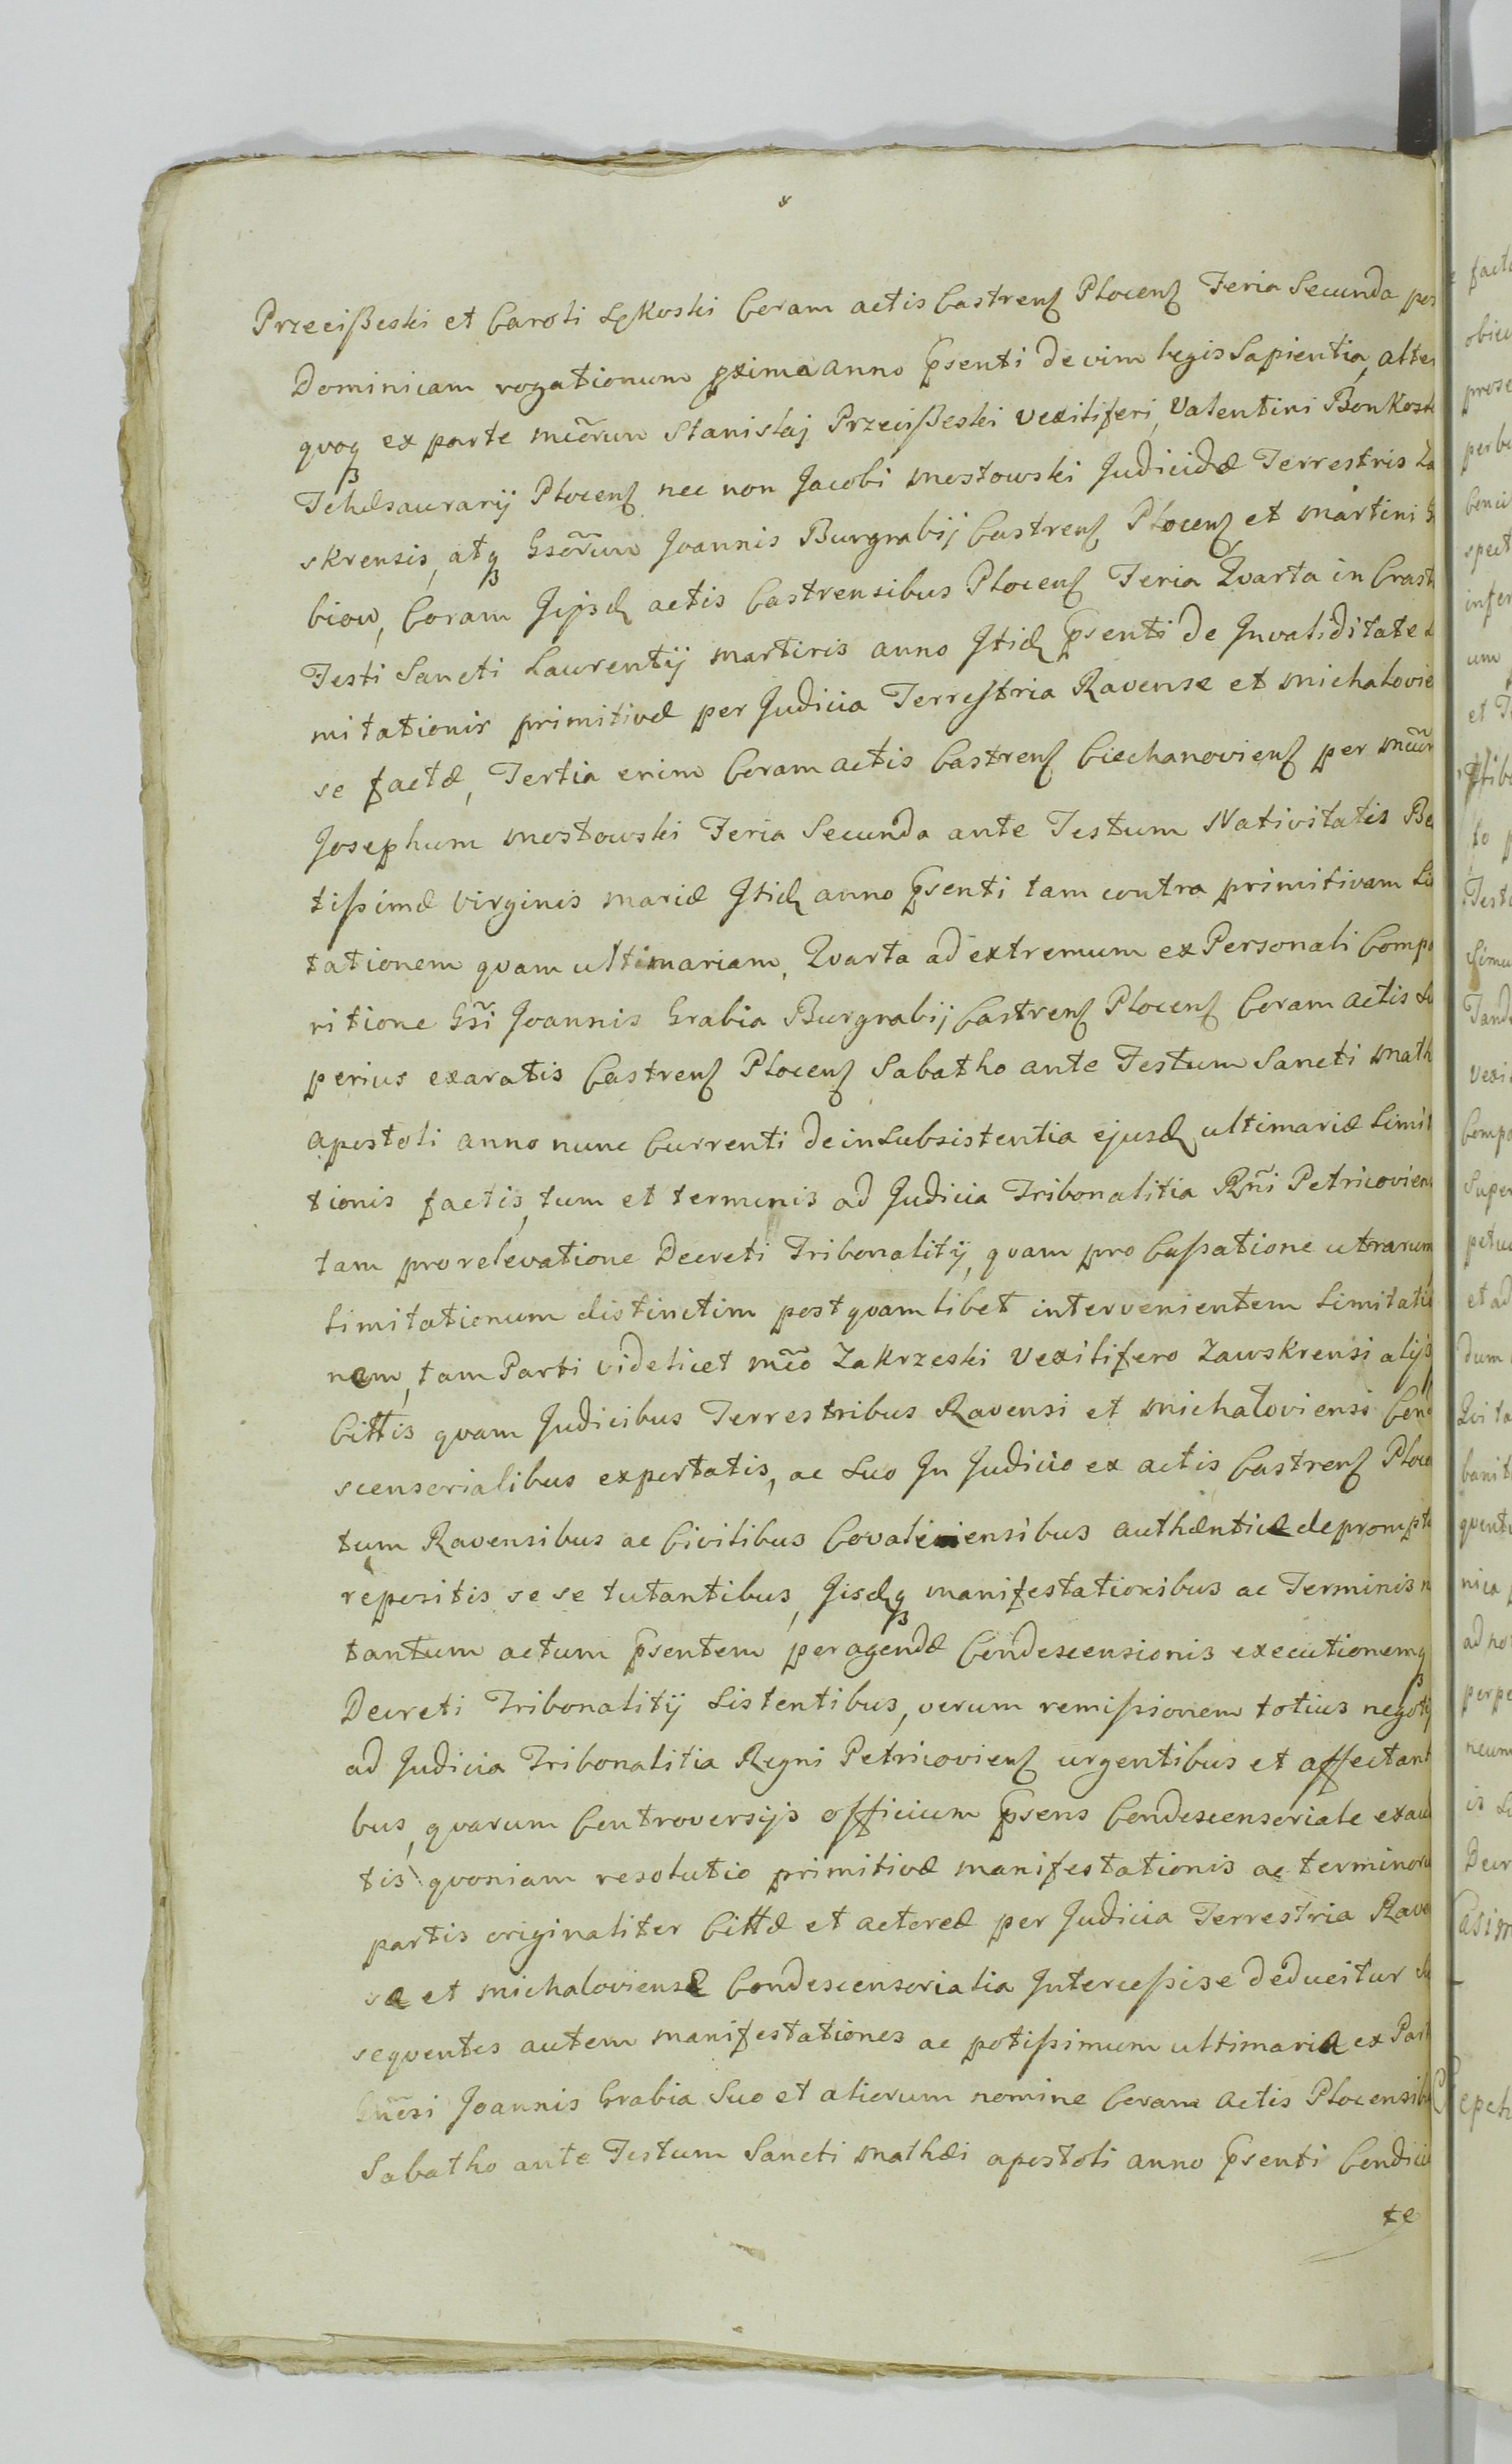 Przecißeski et Caroli Lękoski Coram actis Castrenẜ Plocenẜ Feria Secunda pos
Dominicam rogationum pxima anno Psenti de vim legis Sapientia, alte
quoq ex parte mcõrum Stanislaj Przecißeski Vexiliferi, Valentini Bonkosk
Tehæsaurarij Plocenẜ nec non Jacobi Mostowski Judicidæ Terrestris Za
skrensis, atq Gsõrum Joannis Burgrabij Castrenẜ Plocenẜ et Martini G
biow, Coram Jijsd actis Castrensibus Plocenẜ Feria Qvarta in Crast
Festi Sancti Laurentij Martiris anno Jtid Psenti de Jnvaliditate L
mitationis primitivæ per Judicia Terrestria Ravense et Michalovie
se factæ, Tertia enim Coram actis Castrenẜ Ciechanovienẜ per Mcũm
Josephum Mostowski Feria Secunda ante Festum Nativitatis Be
tißimæ Virginis Mariæ Jtid anno Psenti tam contra primitivam Li
tationem qvam ultimariam, Qvarta ad extremum ex Personali Compa
ritione Gsĩ Joannis Grabia Burgrabij Castrenẜ Plocenẜ Coram actis Su
perius exaratis Castrenẜ Plocenẜ Sabatho ante Festum Sancti Math
Apostoli anno nunc Currenti de inSubsistentia ejusd ultimariæ Limit
tionis factis, tum et terminis ad Judicia Tribonalitia Rñi Petricovien
tam pro relevatione Decreti Tribonalitij, qvam pro Caßatione utrarum
Limitationum distinctim post qvamlibet intervenientem Limitatio
nem, tam Parti videlicet Mcõ Zakrzeski Vexilifero Zawskrensi alijs
Cittis qvam Judicibus Terrestribus Ravensi et Michaloviensi Cond
scensorialibus exportatis, ac Suo Jn Judicio ex actis Castrenẜ Ploce
tum Ravensibus ac Civilibus Covaliensibus authæntice deprompte
repositis se se tutantibus, Jisdq manifestationibus ac Terminis n
tantum actum Psentem peragendæ Condescensionis executionemq
Decreti Tribonalitij Sistentibus, verum remißionem totius negotij
ad Judicia Tribonalitia Regni Petricovienẜ urgentibus et affectant
bus, qvarum Controversijs officium Psens Condescensoriale exaud
tis qvoniam resolutio primitivæ manifestationis ac terminoru
partis originaliter Cittæ et actoreæ per Judicia Terrestria Rave
sa et Michaloviensæ Condescensorialia Jntercißise deducitur Su
seqventes autem manifestationes ac potißimum ultimaria ex Part
Gnẽsi Joannis Grabia Suo et aliorum nomine Coram Actis Plocensib
Sabatho ante Festum Sancti Mathæi apostoli anno Psenti Condici
te